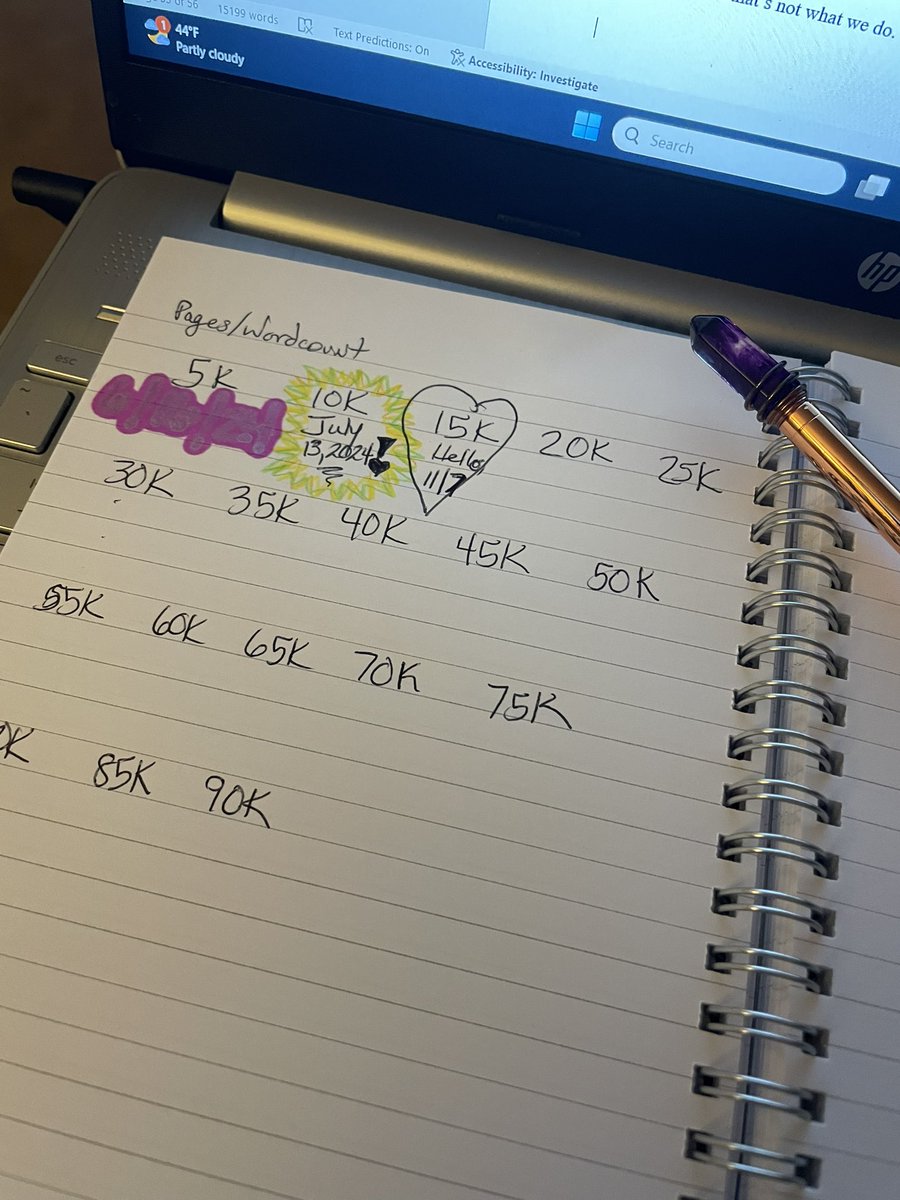 of 56 15199 words Text Predictions: On Accessibility: Investigate
that's not what we do.
1
44°F
Partly cloudy
Search
hp
esc
Pages/Wordcount
5K
10K
July
13, 2024!
15K
Hello
11/7
20K 25K
30K 35K 40K 45K 50K
55K 60K 65K 70K 75K
0K 85K 90K